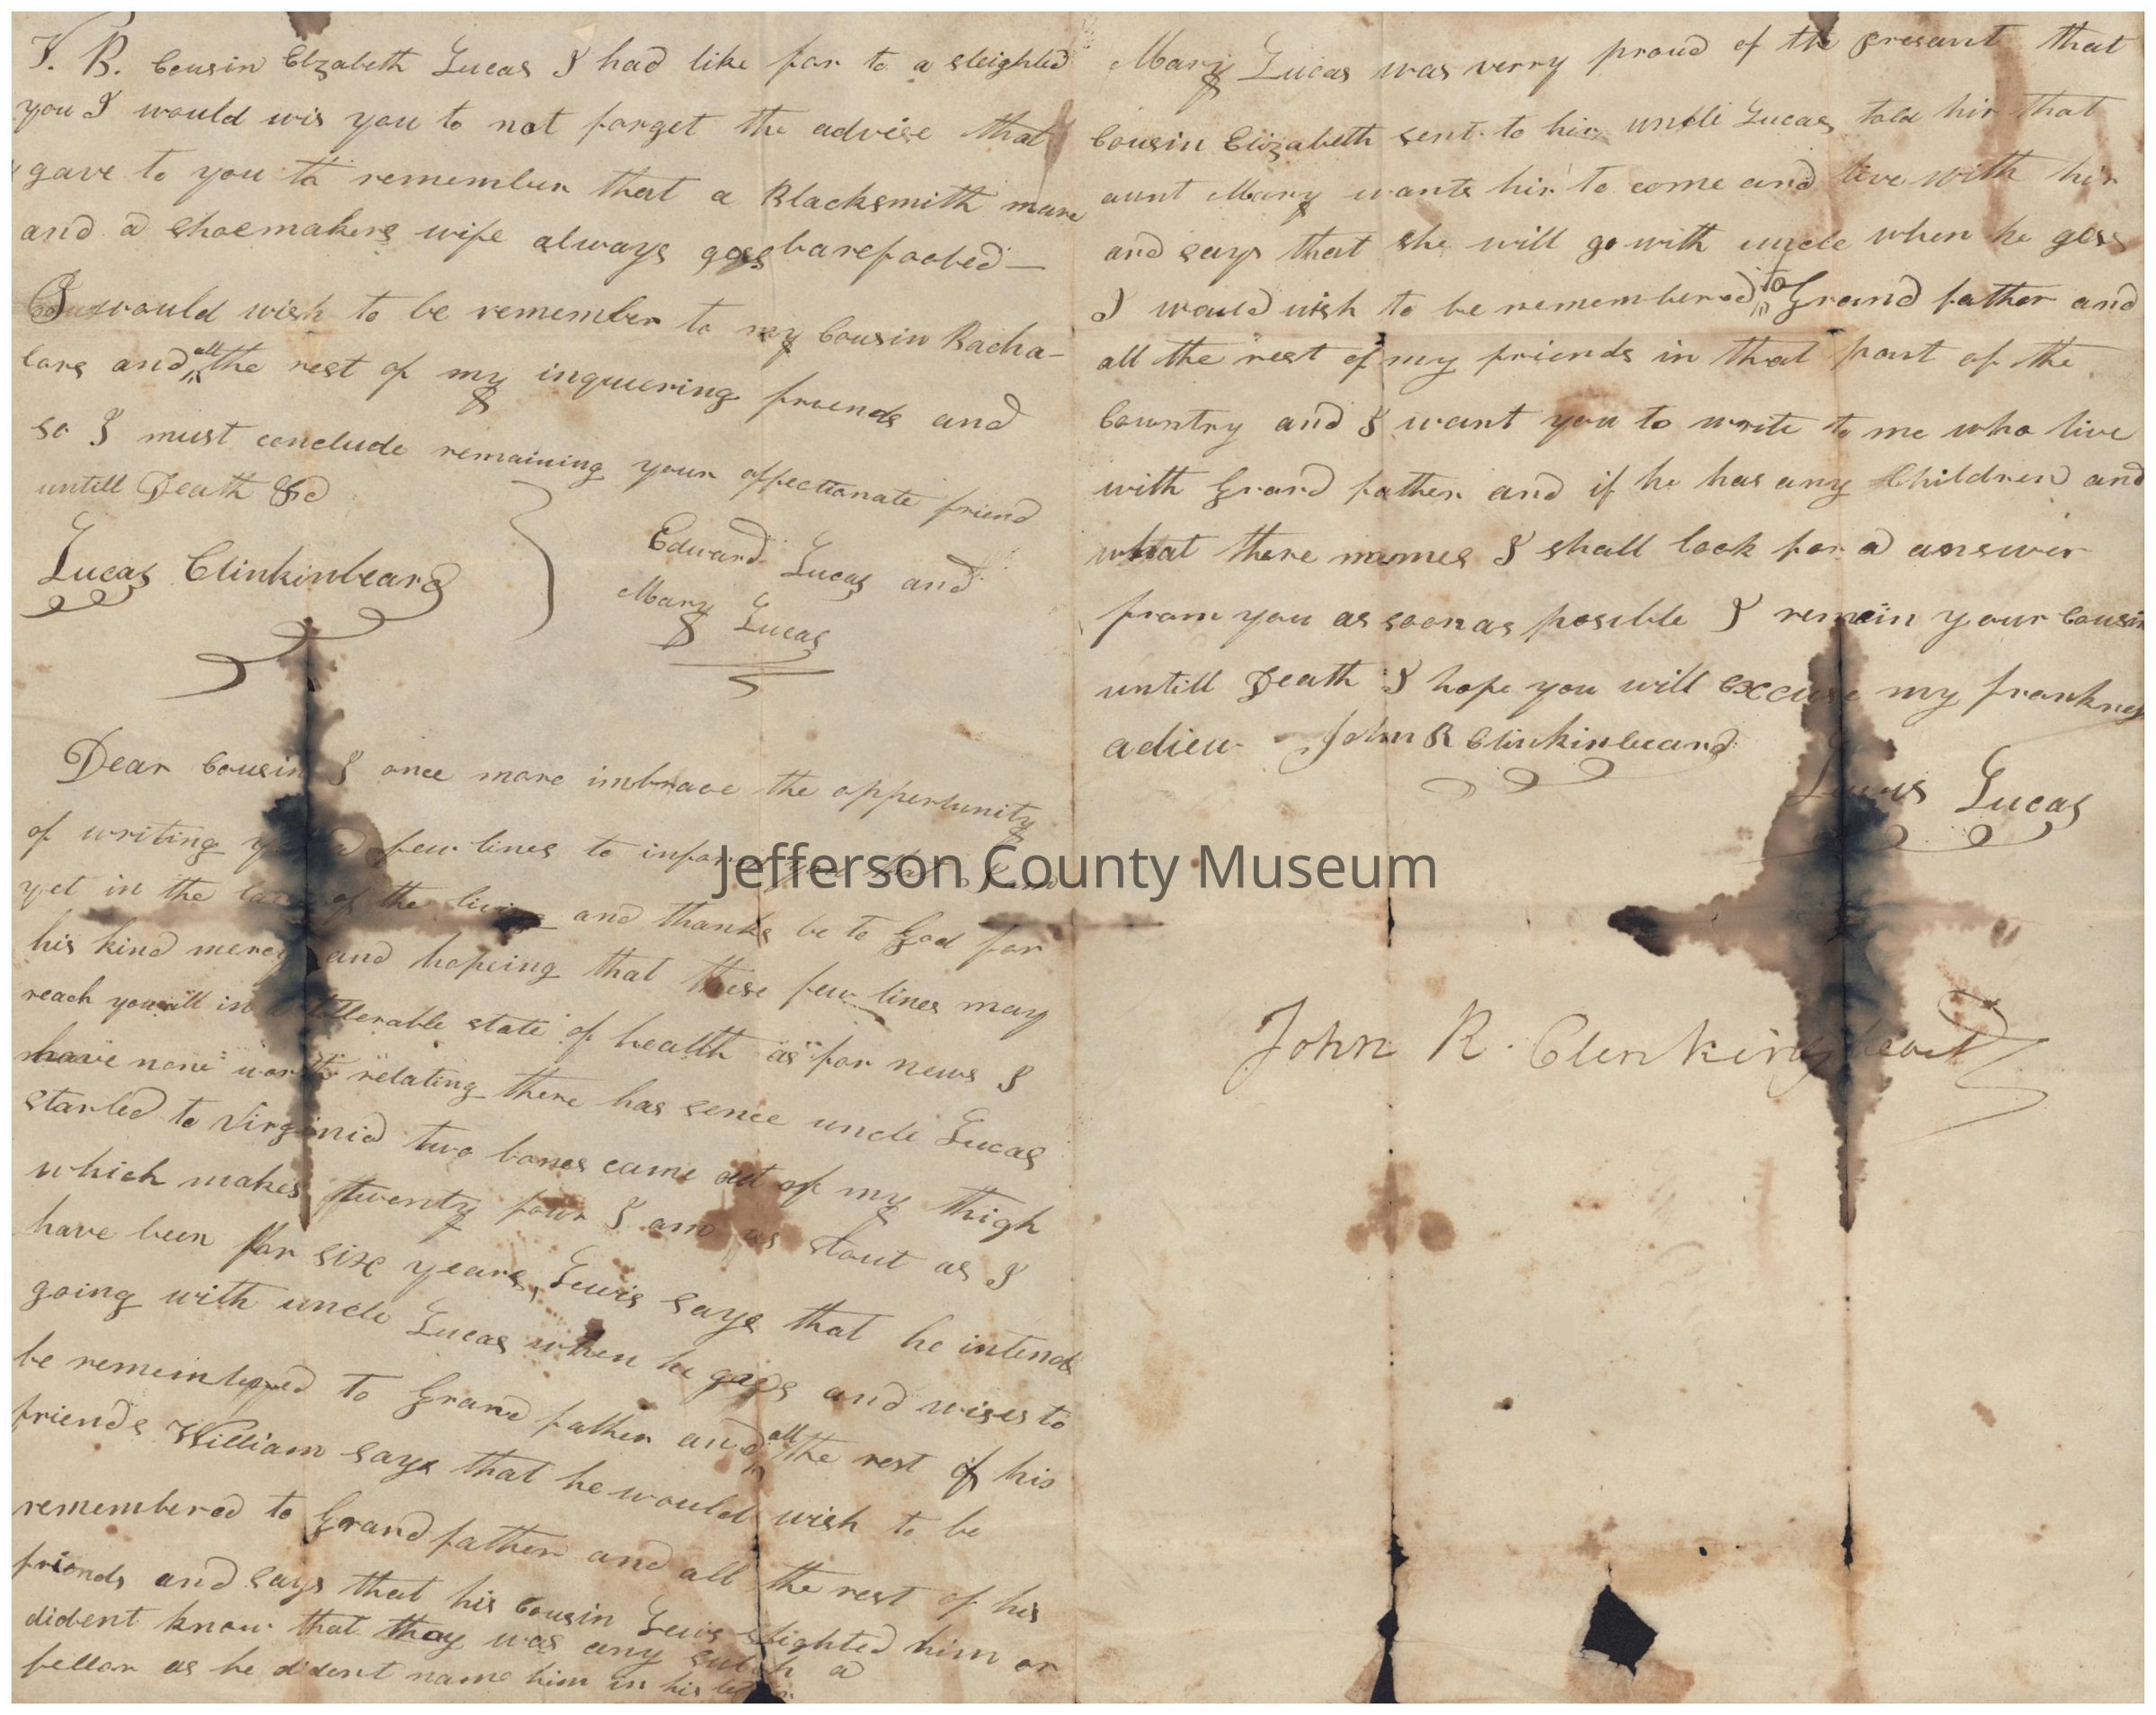 N. B. Cousin Elzabeth Lucas I had like for to a sleighted
you I would wis you to not forget the advise that
I gave to you to remember that a Blacksmith mare
and a shoemakers wife always goes barefooted —
I would wish to be remember to my Cousin Bacha-
lors and all the rest of my inquering friends and
so I must conclude remaining your affectionate friend
untill Death &c
Lucas Clinkinbeard
Edward Lucas and
Mary Lucas
Dear Cousin I once more imbrace the oppertunity
of writing you a few lines to inform you that I am
yet in the land of the living and thanks be to God for
his kind mercy and hopeing that these few lines may
reach you all in a tollerable state of health as for news I
have none worth relating there has sence uncle Lucas
started to Virginia two bones came out of my thigh
which makes twenty four I am as stout as I
have been for six years, Lewis says that he intends
going with uncle Lucas when he goes and wises to
be remembered to Grand father and all the rest of his
friends William says that he would wish to be
remembered to Grand father and all the rest of his
friends and says that his Cousin Lewis slighted him or
dident know that thay was any sutch a
fellor as he dident name him in his letter
Mary Lucas was verry proud of the presant that
Cousin Elizabeth sent to hir uncle Lucas told hir that
aunt Mary wants hir to come and live with hir
and says that she will go with uncle when he goes
I would wish to be remembered to Grand father and
all the rest of my friends in that part of the
Country and I want you to write to me who live
with Grand father and if he has any Children and
what there names I shall look for a answer
from you as soon as posible I remain your Cousin
untill Death I hope you will excuse my frankness
adieu John R Clinkinbeard
Lewis Lucas
Jefferson County Museum
John R. Clenkingbeard